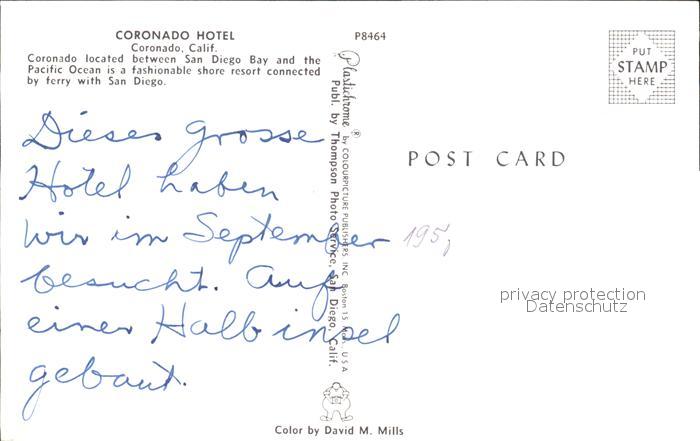 CORONADO HOTEL
Coronado, Calif.
Coronado located between San Diego Bay and the
Pacific Ocean is a fashionable shore resort connected
by ferry with San Diego.
P8464
PUT
STAMP
HERE
POST CARD
Dieses grosse
Hotel haben
wir im September
besucht. Auf
einer Halbinsel
gebaut.
Plastichrome ® by COLOURPICTURE PUBLISHERS, INC. Boston 15, Mass. U.S.A
Publ. by Thompson Photo Service, San Diego, Calif.
privacy protection
Datenschutz
Color by David M. Mills